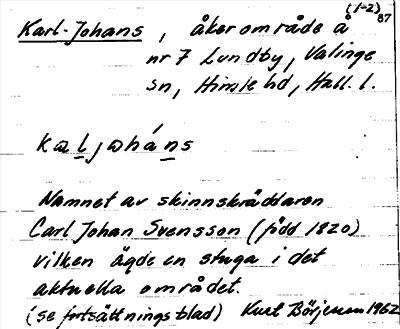 (1-2) 87
Karl-Johans, åkerområde å
nr 7 Lundby, Valinge
sn, Himle hd, Hall. l.
kaljoháns
Namnet av skinnskräddaren
Carl Johan Svensson (född 1820)
vilken ägde en stuga i det
aktuella området.
(se fortsättningsblad) Kurt Börjesson 1962